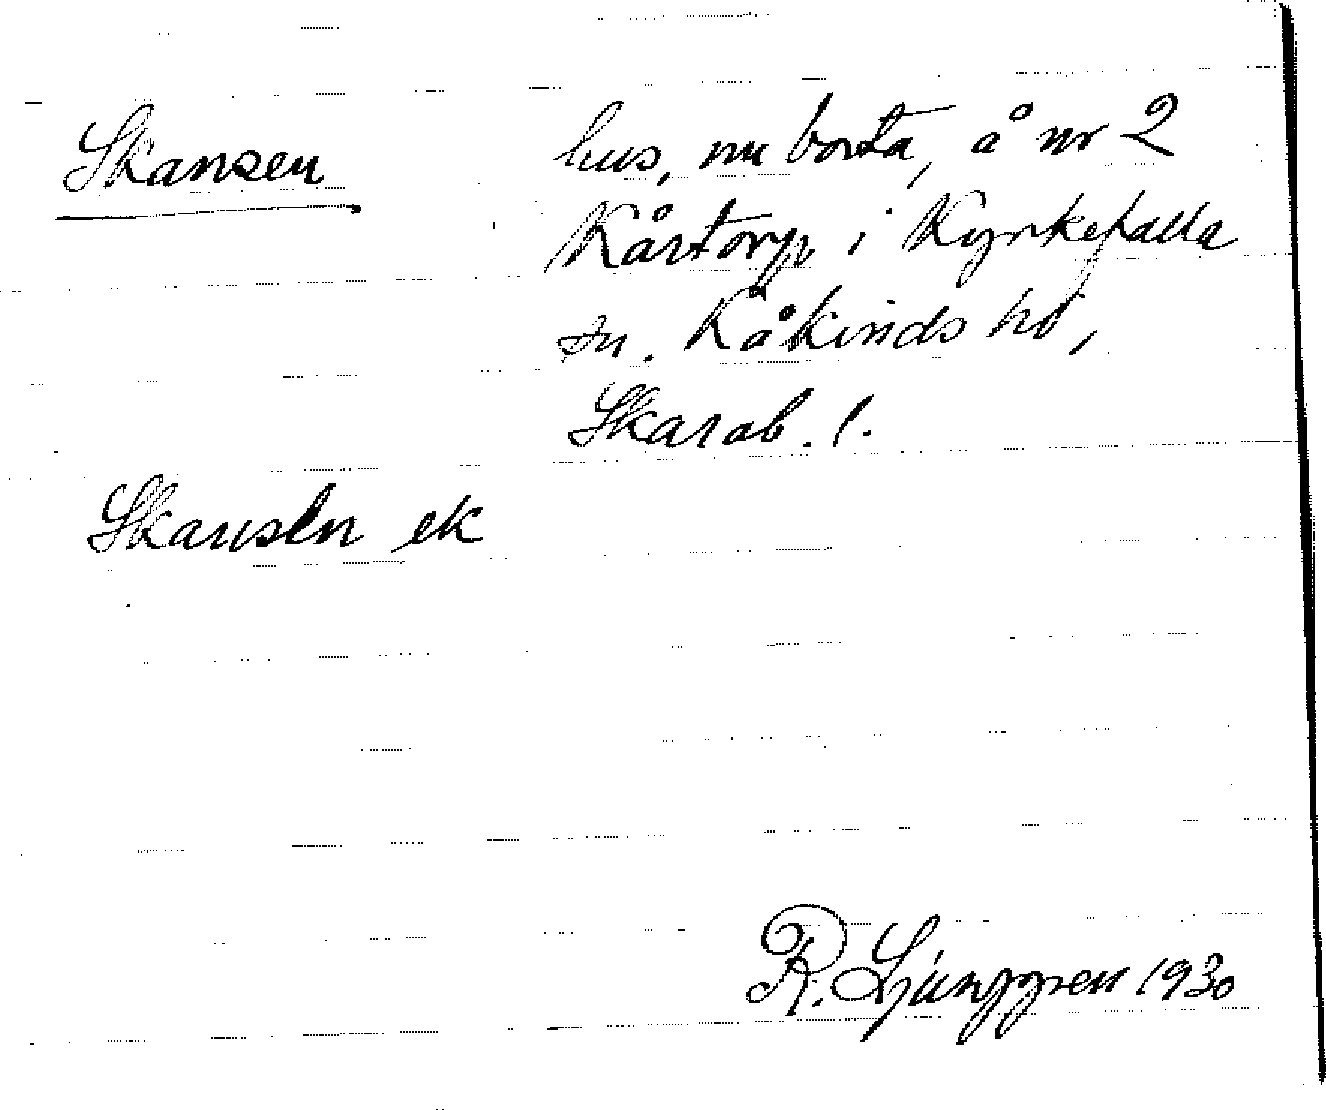 Skansen hus, nu borta, å nr 2
Kårtorp i Kyrkefalla
sn. Kåkinds hd,
Skarab. l.
Skansen ek
R. Ljunggren 1930